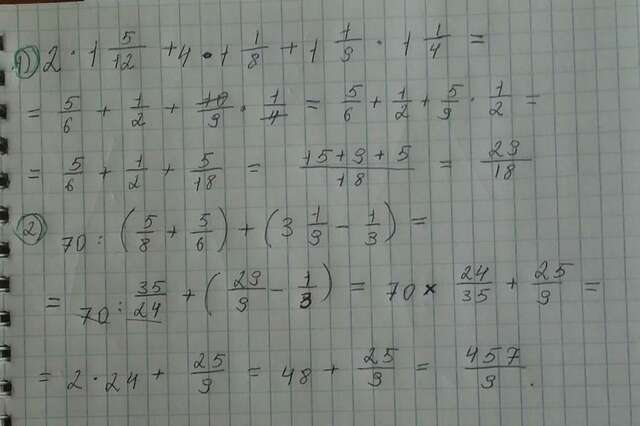 1) 2 · 1 5/12 + 4 · 1 1/8 + 1 1/9 · 1 1/4 =
= 5/6 + 1/2 + 10/9 · 1/4 = 5/6 + 1/2 + 5/9 · 1/2 =
= 5/6 + 1/2 + 5/18 = (15+9+5)/18 = 29/18
2) 70 : (5/8 + 5/6) + (3 1/9 − 1/3) =
= 70 : 35/24 + (29/9 − 1/3) = 70 × 24/35 + 25/9 =
= 2 · 24 + 25/9 = 48 + 25/9 = 457/9 .